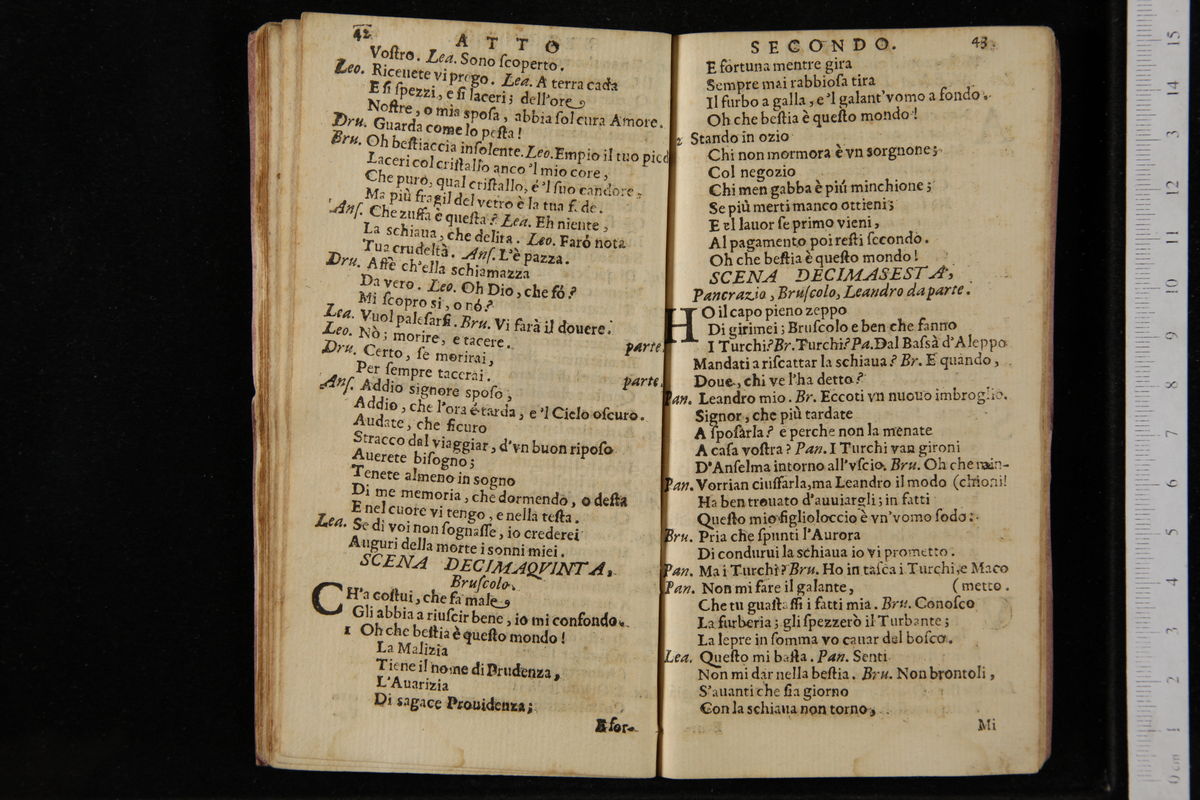 42
ATTO
Voſtro. Lea. Sono ſcoperto.
Leo. Riceuete vi prego. Lea. A terra cada
E ſi ſpezzi, e ſi laceri; dell'ore
Noſtre, o mia spoſa, abbia ſol cura Amore.
Dru. Guarda come lo peſta!
Bru. Oh beſtiaccia inſolente. Leo. Empio il tuo pied
Laceri col criſtallo anco 'l mio core,
Che puro, qual criſtallo, é 'l ſuo candore,
Ma più fragil del vetro è la tua f. de.
Anſ. Che zuffa è queſta? Lea. Eh niente,
La schiaua, che delira. Leo. Faró nota
Tua crudeltà. Anſ. L'è pazza.
Dru. Affè ch'ella schiamazza
Da vero. Leo. Oh Dio, che fó?
Mi ſcopro si, o nó?
Lea. Vuol paleſarſi. Bru. Vi farà il douere.
Leo. Nò; morire, e tacere. parte.
Dru. Certo, ſe morirai,
Per ſempre tacerai. parte.
Anſ. Addio signore spoſo,
Addio, che l'ora é tarda, e 'l Cielo oſcuro.
Audate, che ſicuro
Stracco dal viaggiar, d'vn buon ripoſo
Auerete biſogno;
Tenete almeno in sogno
Di me memoria, che dormendo, o deſta
E nel cuore vi tengo, e nella teſta.
Lea. Se di voi non ſognaſſe, io crederei
Auguri della morte i sonni miei.
SCENA DECIMAQVINTA,
Bruſcolo.
CH'a coſtui, che fa male
Gli abbia a riuſcir bene, io mi confondo.
1 Oh che beſtia è queſto mondo!
La Malizia
Tiene il nome di Prudenza,
L'Auarizia
Di sagace Prouidenza;
E for-
SECONDO.
43
E fortuna mentre gira
Sempre mai rabbioſa tira
Il furbo a galla, e 'l galant'vomo a fondo.
Oh che beſtia è queſto mondo!
2 Stando in ozio
Chi non mormora è vn sorgnone;
Col negozio
Chi men gabba è più minchione;
Se più merti manco ottieni;
E al lauor ſe primo vieni,
Al pagamento poi reſti ſecondo.
Oh che beſtia è queſto mondo!
SCENA DECIMASESTA,
Pancrazio, Bruſcolo, Leandro da parte.
HO il capo pieno zeppo
Di girimei; Bruſcolo e ben che fanno
I Turchi? Br. Turchi? Pa. Dal Baſsà d'Aleppo
Mandati a riſcattar la schiaua? Br. E quando,
Doue, chi ve l'ha detto?
Pan. Leandro mio. Br. Eccoti vn nuouo imbroglio.
Signor, che più tardate
A ſpoſarla? e perche non la menate
A caſa voſtra? Pan. I Turchi van gironi
D'Anſelma intorno all'vſcio. Bru. Oh che min-
Pan. Vorrian ciuffarla, ma Leandro il modo (chioni!
Ha ben trouato d'auuiargli; in fatti
Queſto mio figlioloccio è vn'vomo ſodo.
Bru. Pria che ſpunti l'Aurora
Di condurui la schiaua io vi prometto.
Pan. Ma i Turchi? Bru. Ho in taſca i Turchi, e Maco
Pan. Non mi fare il galante, (metto.
Che tu guaſtaſſi i fatti mia. Bru. Conoſco
La furberia; gli spezzerò il Turbante;
La lepre in ſomma vo cauar del boſco.
Lea. Queſto mi baſta. Pan. Senti
Non mi dar nella beſtia. Bru. Non brontoli,
S'auanti che ſia giorno
Con la schiaua non torno,
Mi